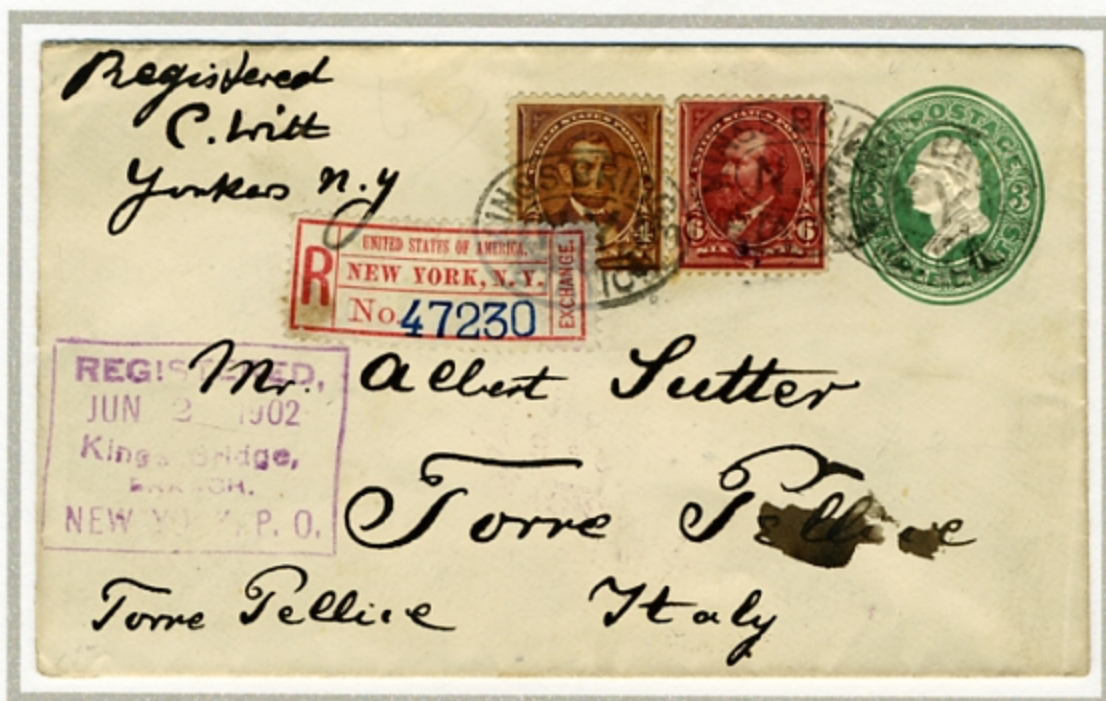 Registered
C. Witt
Yonkers N.Y
UNITED STATES OF AMERICA.
R
NEW YORK, N. Y.
No. 47230
EXCHANGE.
UNITED STATES POSTAGE
UNITED STATES POSTAGE
6 6
POSTAGE
REGISTERED,
JUN 2 1902
Kings Bridge,
BRANCH.
NEW YORK, P. O.
Mr. Albert Sutter
Torre Pellice
Torre Pellice Italy